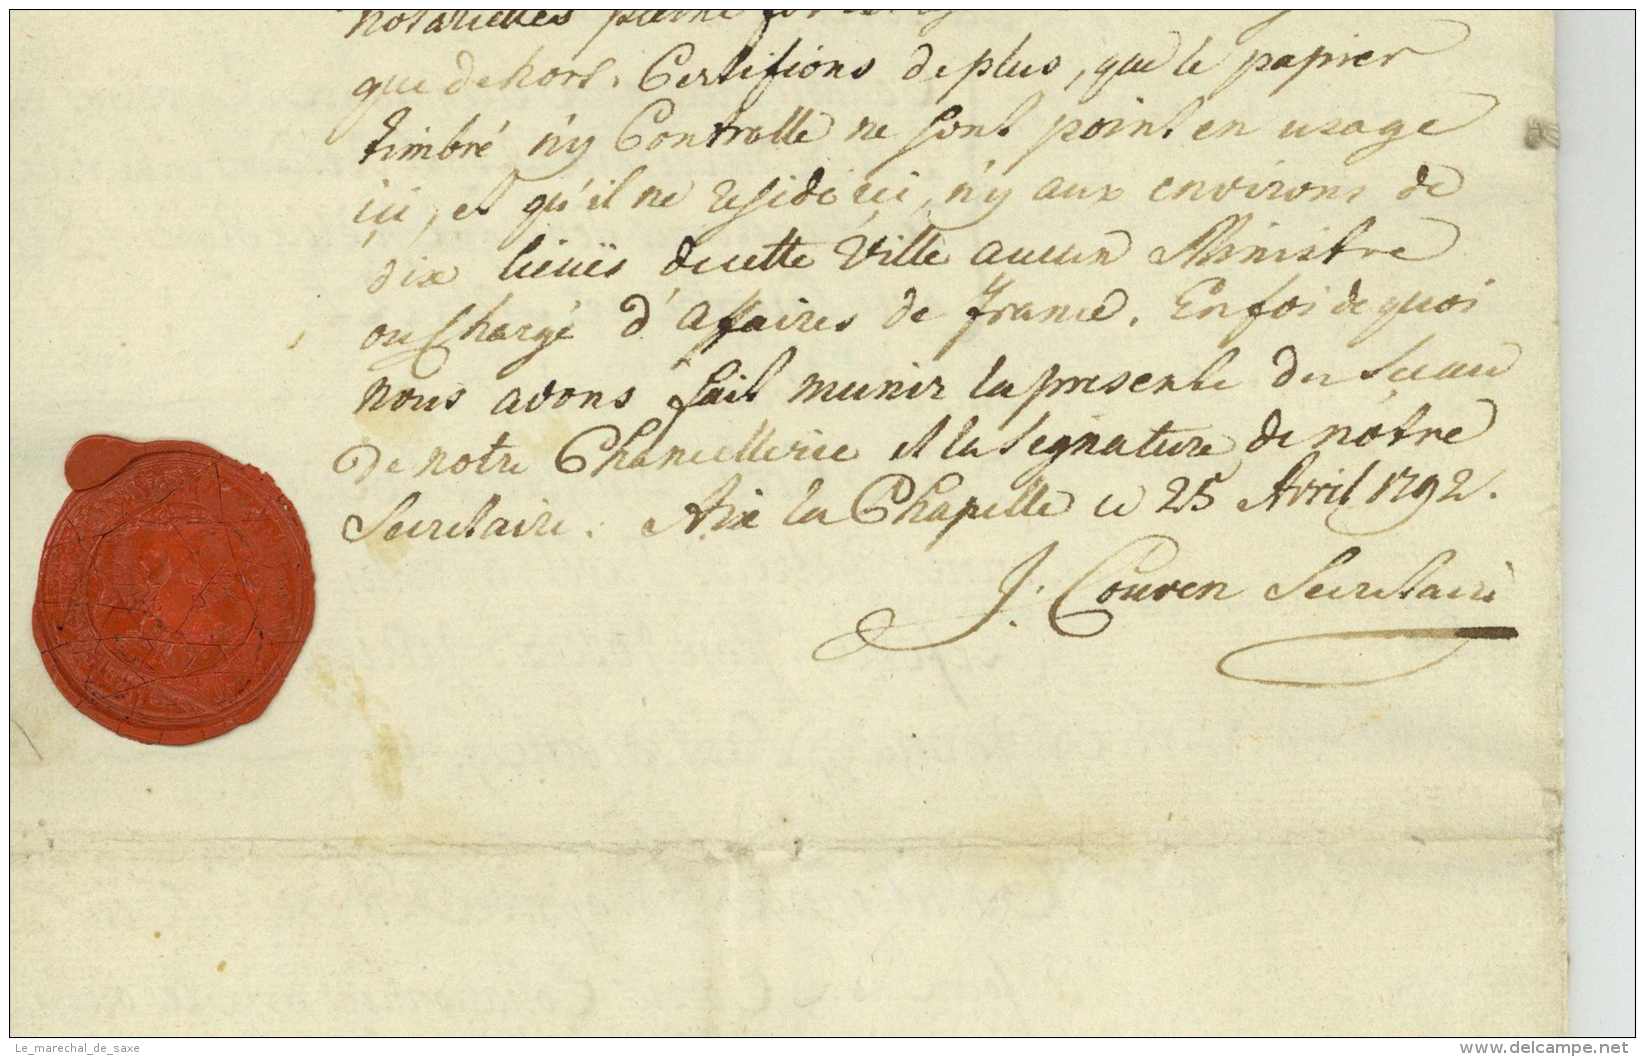 notarielles pleine
que dehors. Certifions de plus, que le papier
timbré n'y Controlle ne sont point en usage
ici, et qu'il ne reside ici, n'y aux environs de
dix lieuës de cette Ville aucun Ministre
ou Chargé d'affaires de France. En foi de quoi
nous avons fait munir la presente du Sceau
de notre Chancellerie et la Signature de nôtre
Secretaire. Aix la Chapelle ce 25 Avril 1792.
J. Couven Secretaire
Le_marechal_de_saxe
www.delcampe.net